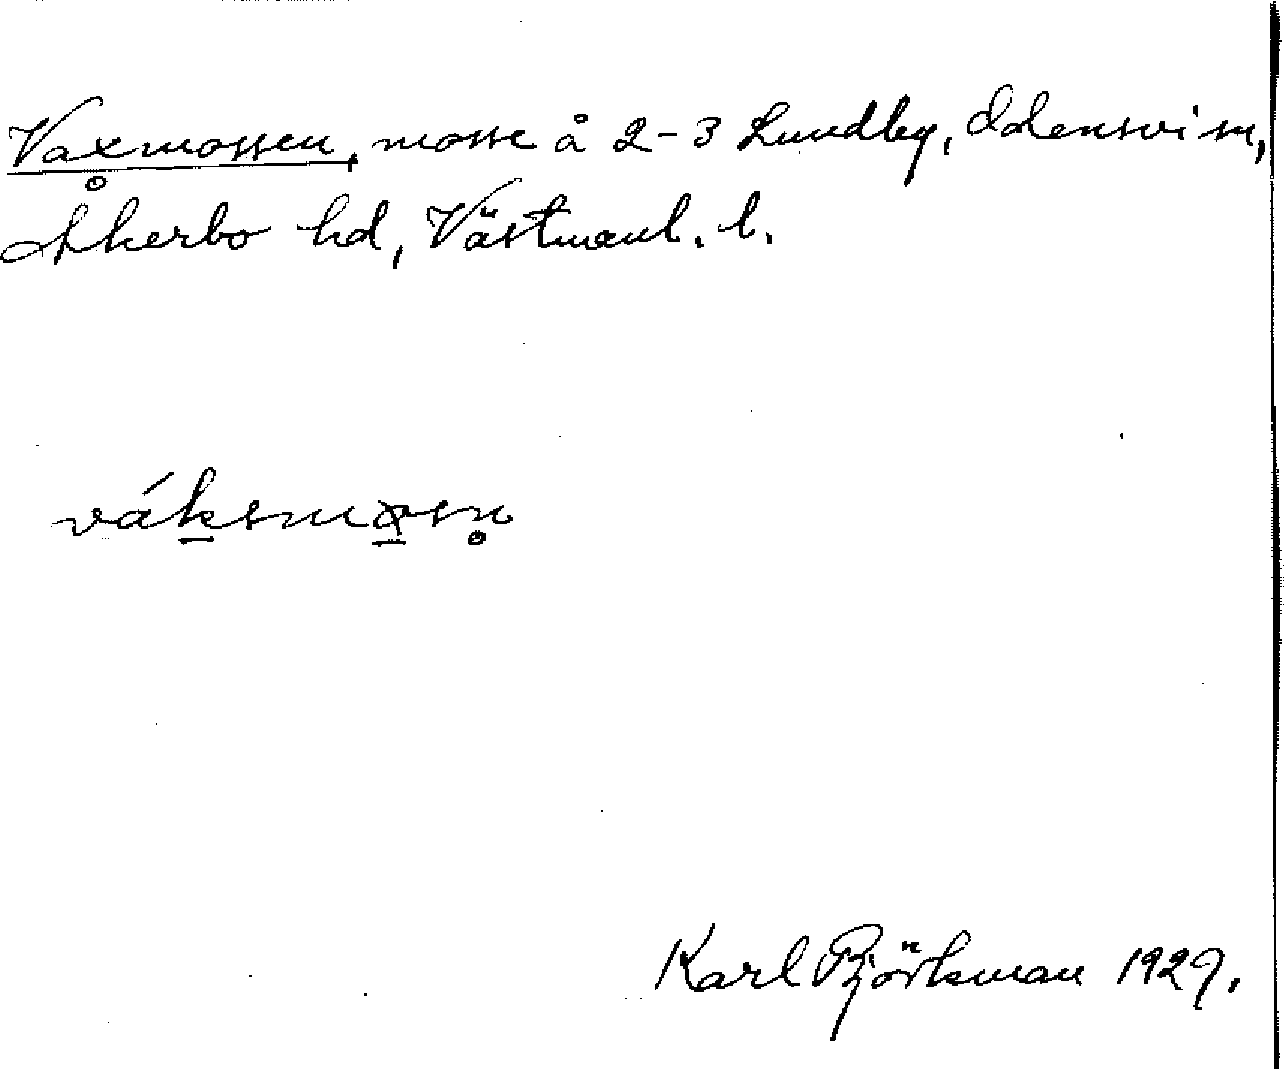 Vaxmossen, mosse å 2-3 Lundby, Odensvi sn,
Åkerbo hd, Västmanl. l.
váksmɷsn̥
Karl Björkman 1929.